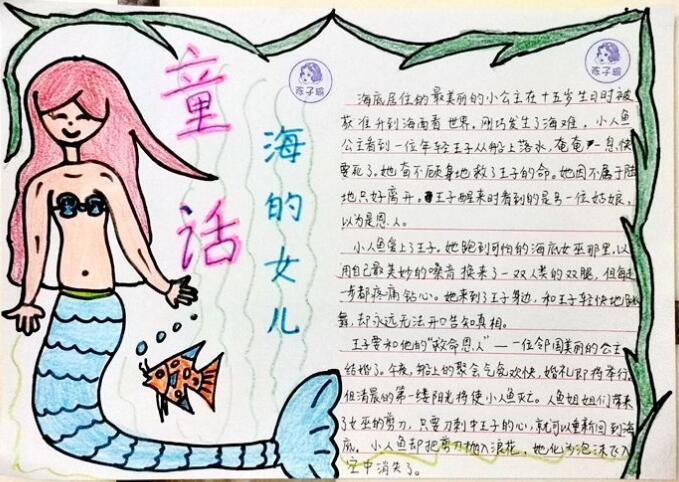 童话
海的女儿
海底居住的最美丽的小公主在十五岁生日时被
获准升到海面看世界。刚巧发生了海难，小人鱼
公主看到一位年轻王子从船上落水，奄奄一息，快
要死了。她奋不顾身地救了王子的命。她因不属于陆
地只好离开。王子醒来时看到的是另一位姑娘，
以为是恩人。
小人鱼爱上了王子。她跑到可怕的海底女巫那里，以
用自己最美妙的嗓音换来了一双人类的双腿，但每走
一步都疼痛钻心。她来到了王子身边，和王子轻快地跳
舞，却永远无法开口告知真相。
王子要和他的“救命恩人”——一位邻国美丽的公主
结婚了。午夜，船上的聚会气氛欢快，婚礼即将举行。
但清晨的第一缕阳光将使小人鱼灭亡。人鱼姐姐们带来
了女巫的剪刀，只要刺中王子的心，就可以重新回到海
底。小人鱼却把剪刀抛入浪花，她化为泡沫飞入
空中消失了。